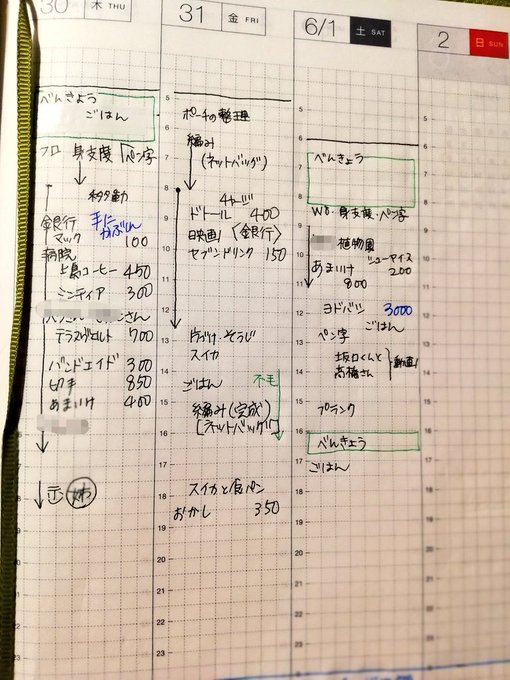 30 木 THU
べんきょう
ごはん
フロ 身支度 ペン字
移動
銀行 手に
マック かぶしん
100
病院
上島コーヒー 450
ミンティア 300
700
バンドエイド 300
切手 850
あまいけ 400
姉
31 金 FRI
ポーチの整理
編み
(ネットバッグ)
チャージ
ドトール 400
映画 〈銀行〉
セブンドリンク 150
片づけ・そうじ
スイカ
ごはん 不毛
編み(完成)
[ネットバッグ]
スイカと食パン
おかし 350
6/1 土 SAT
べんきょう
WO・身支度・ペン字
植物園
シューアイス
あまいけ 200
800
ヨドバシ 3000
ごはん
ペン字
坂口くんと
高橋さん
動画
プランク
べんきょう
ごはん
2 日 SUN